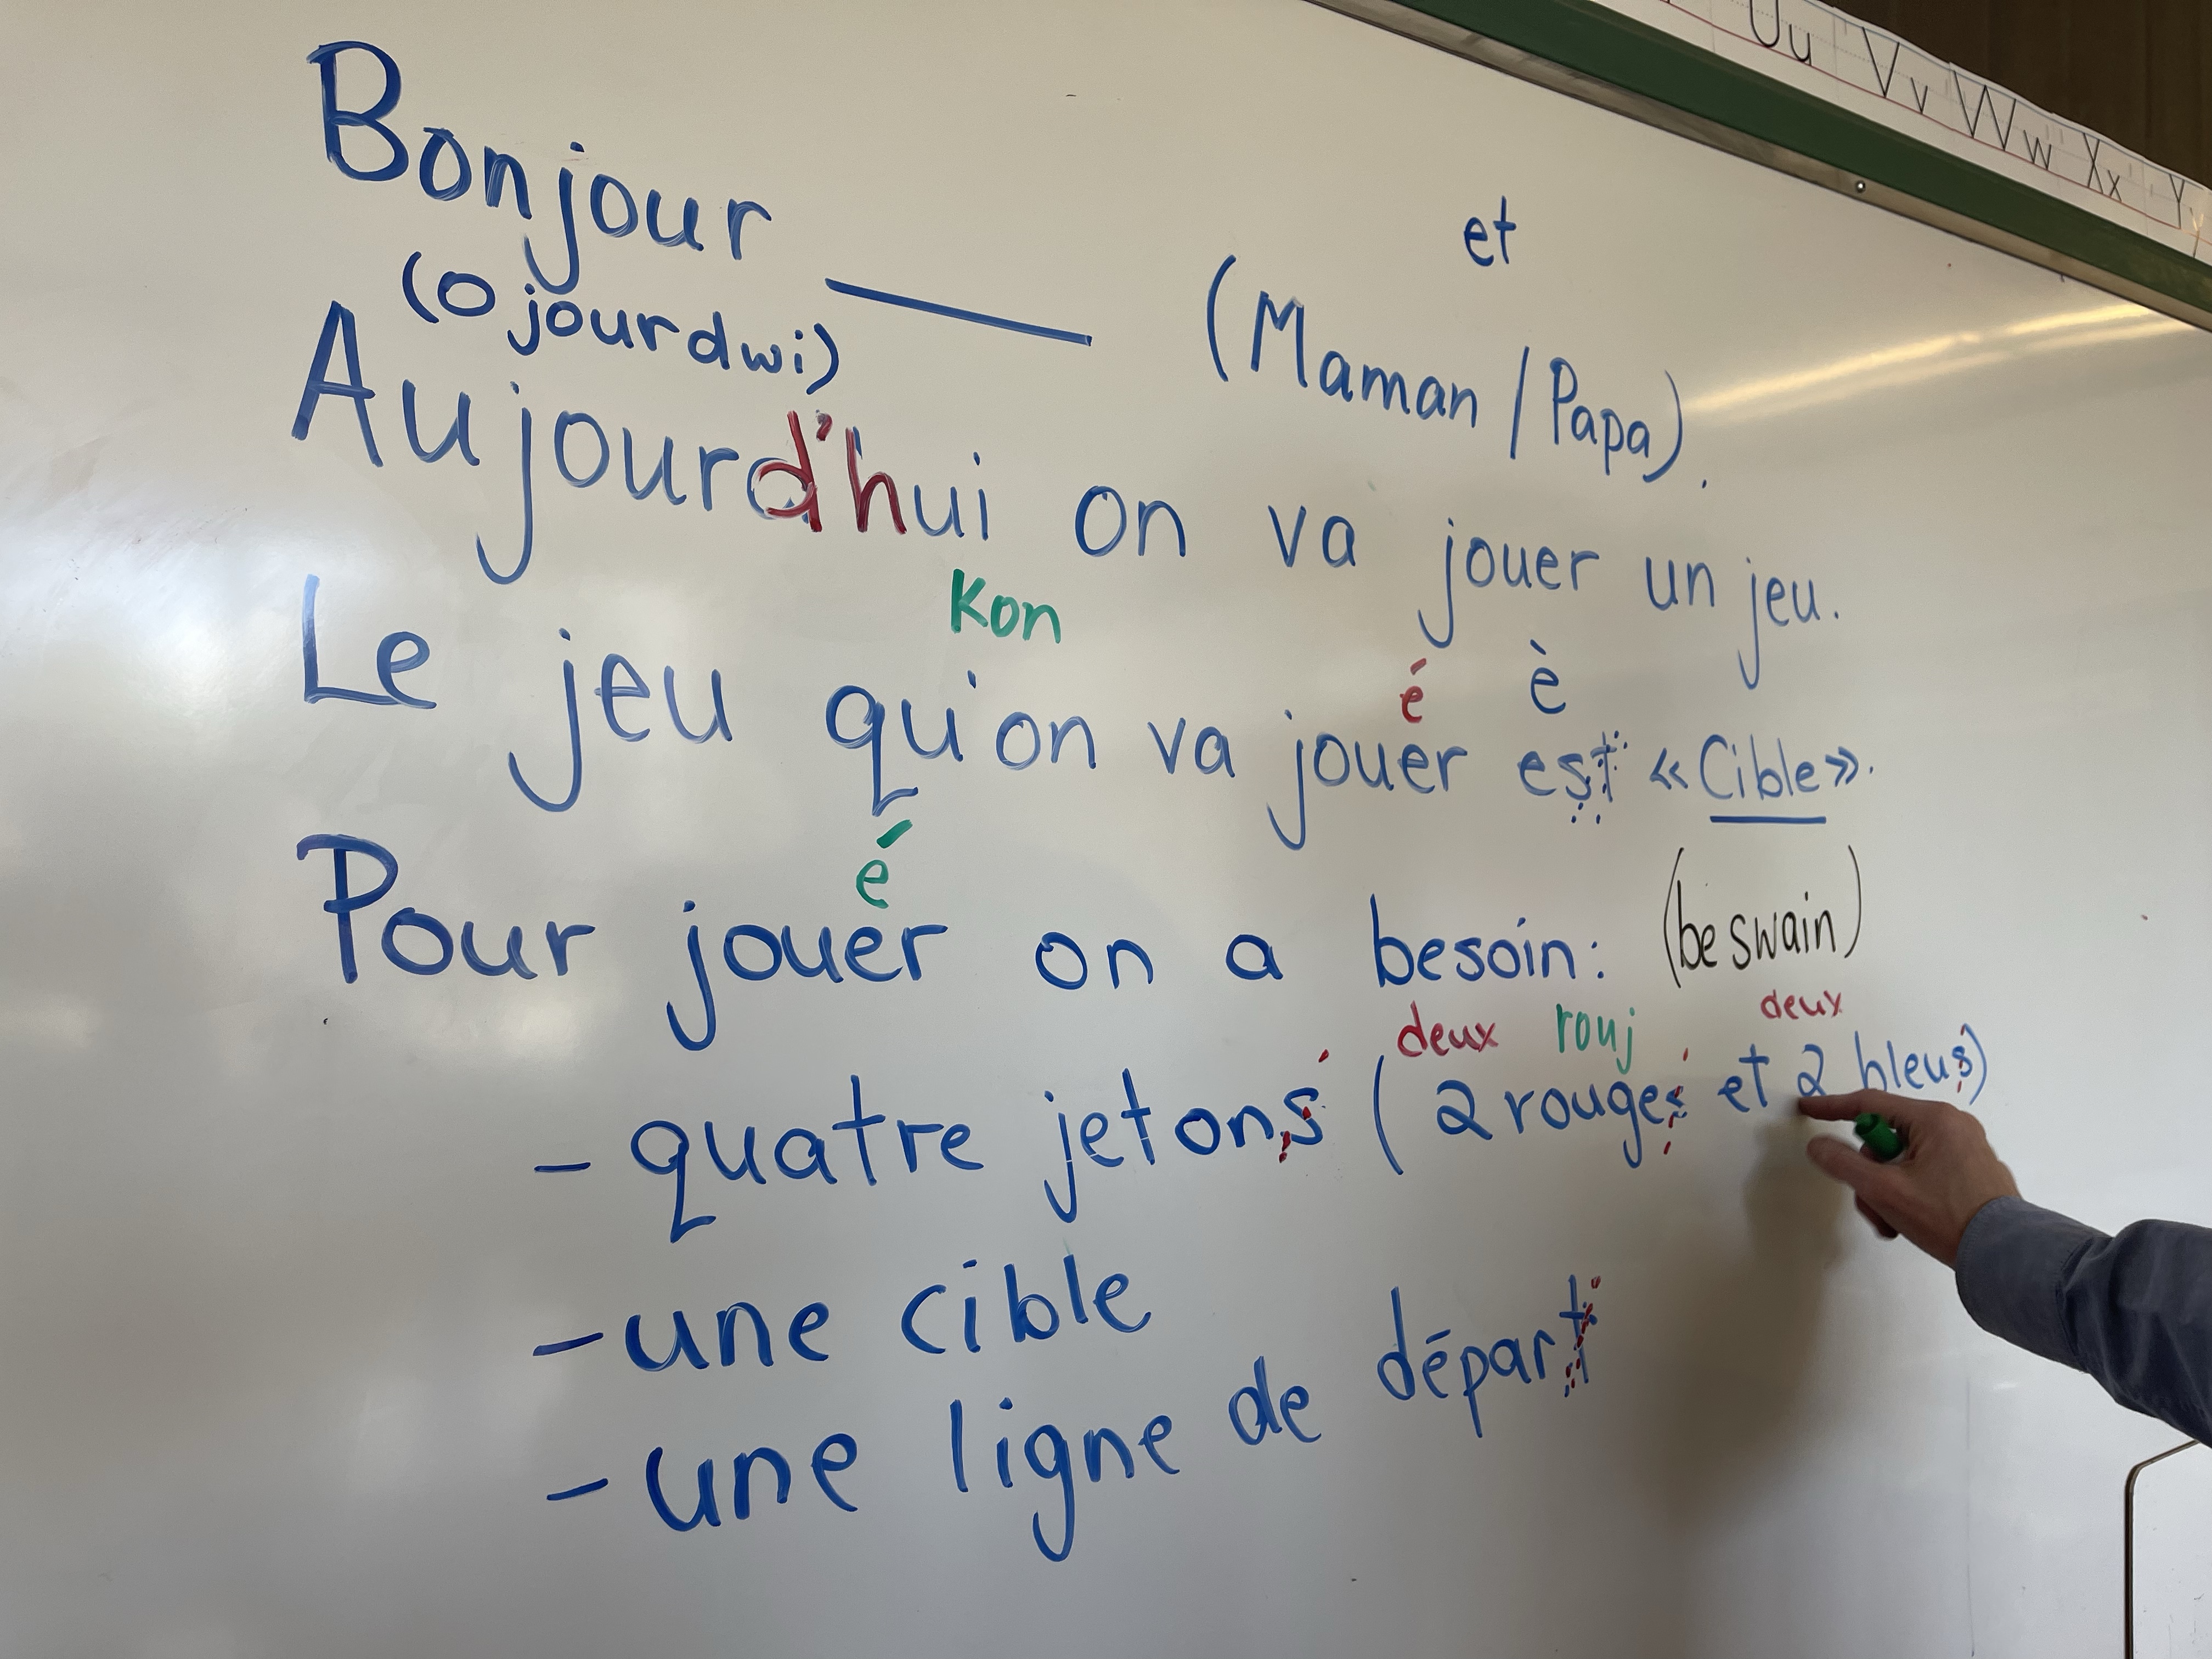 Uu Vv Ww Xx Y
Bonjour ____ et
(Maman / Papa).
(o jourdwi)
Aujourd'hui on va jouer un jeu.
Kon é è
Le jeu qu'on va jouer est « Cible ».
é (be swain)
Pour jouer on a besoin:
deux rouj deux
- quatre jetons (2 rouges et 2 bleus)
- une cible
- une ligne de départ